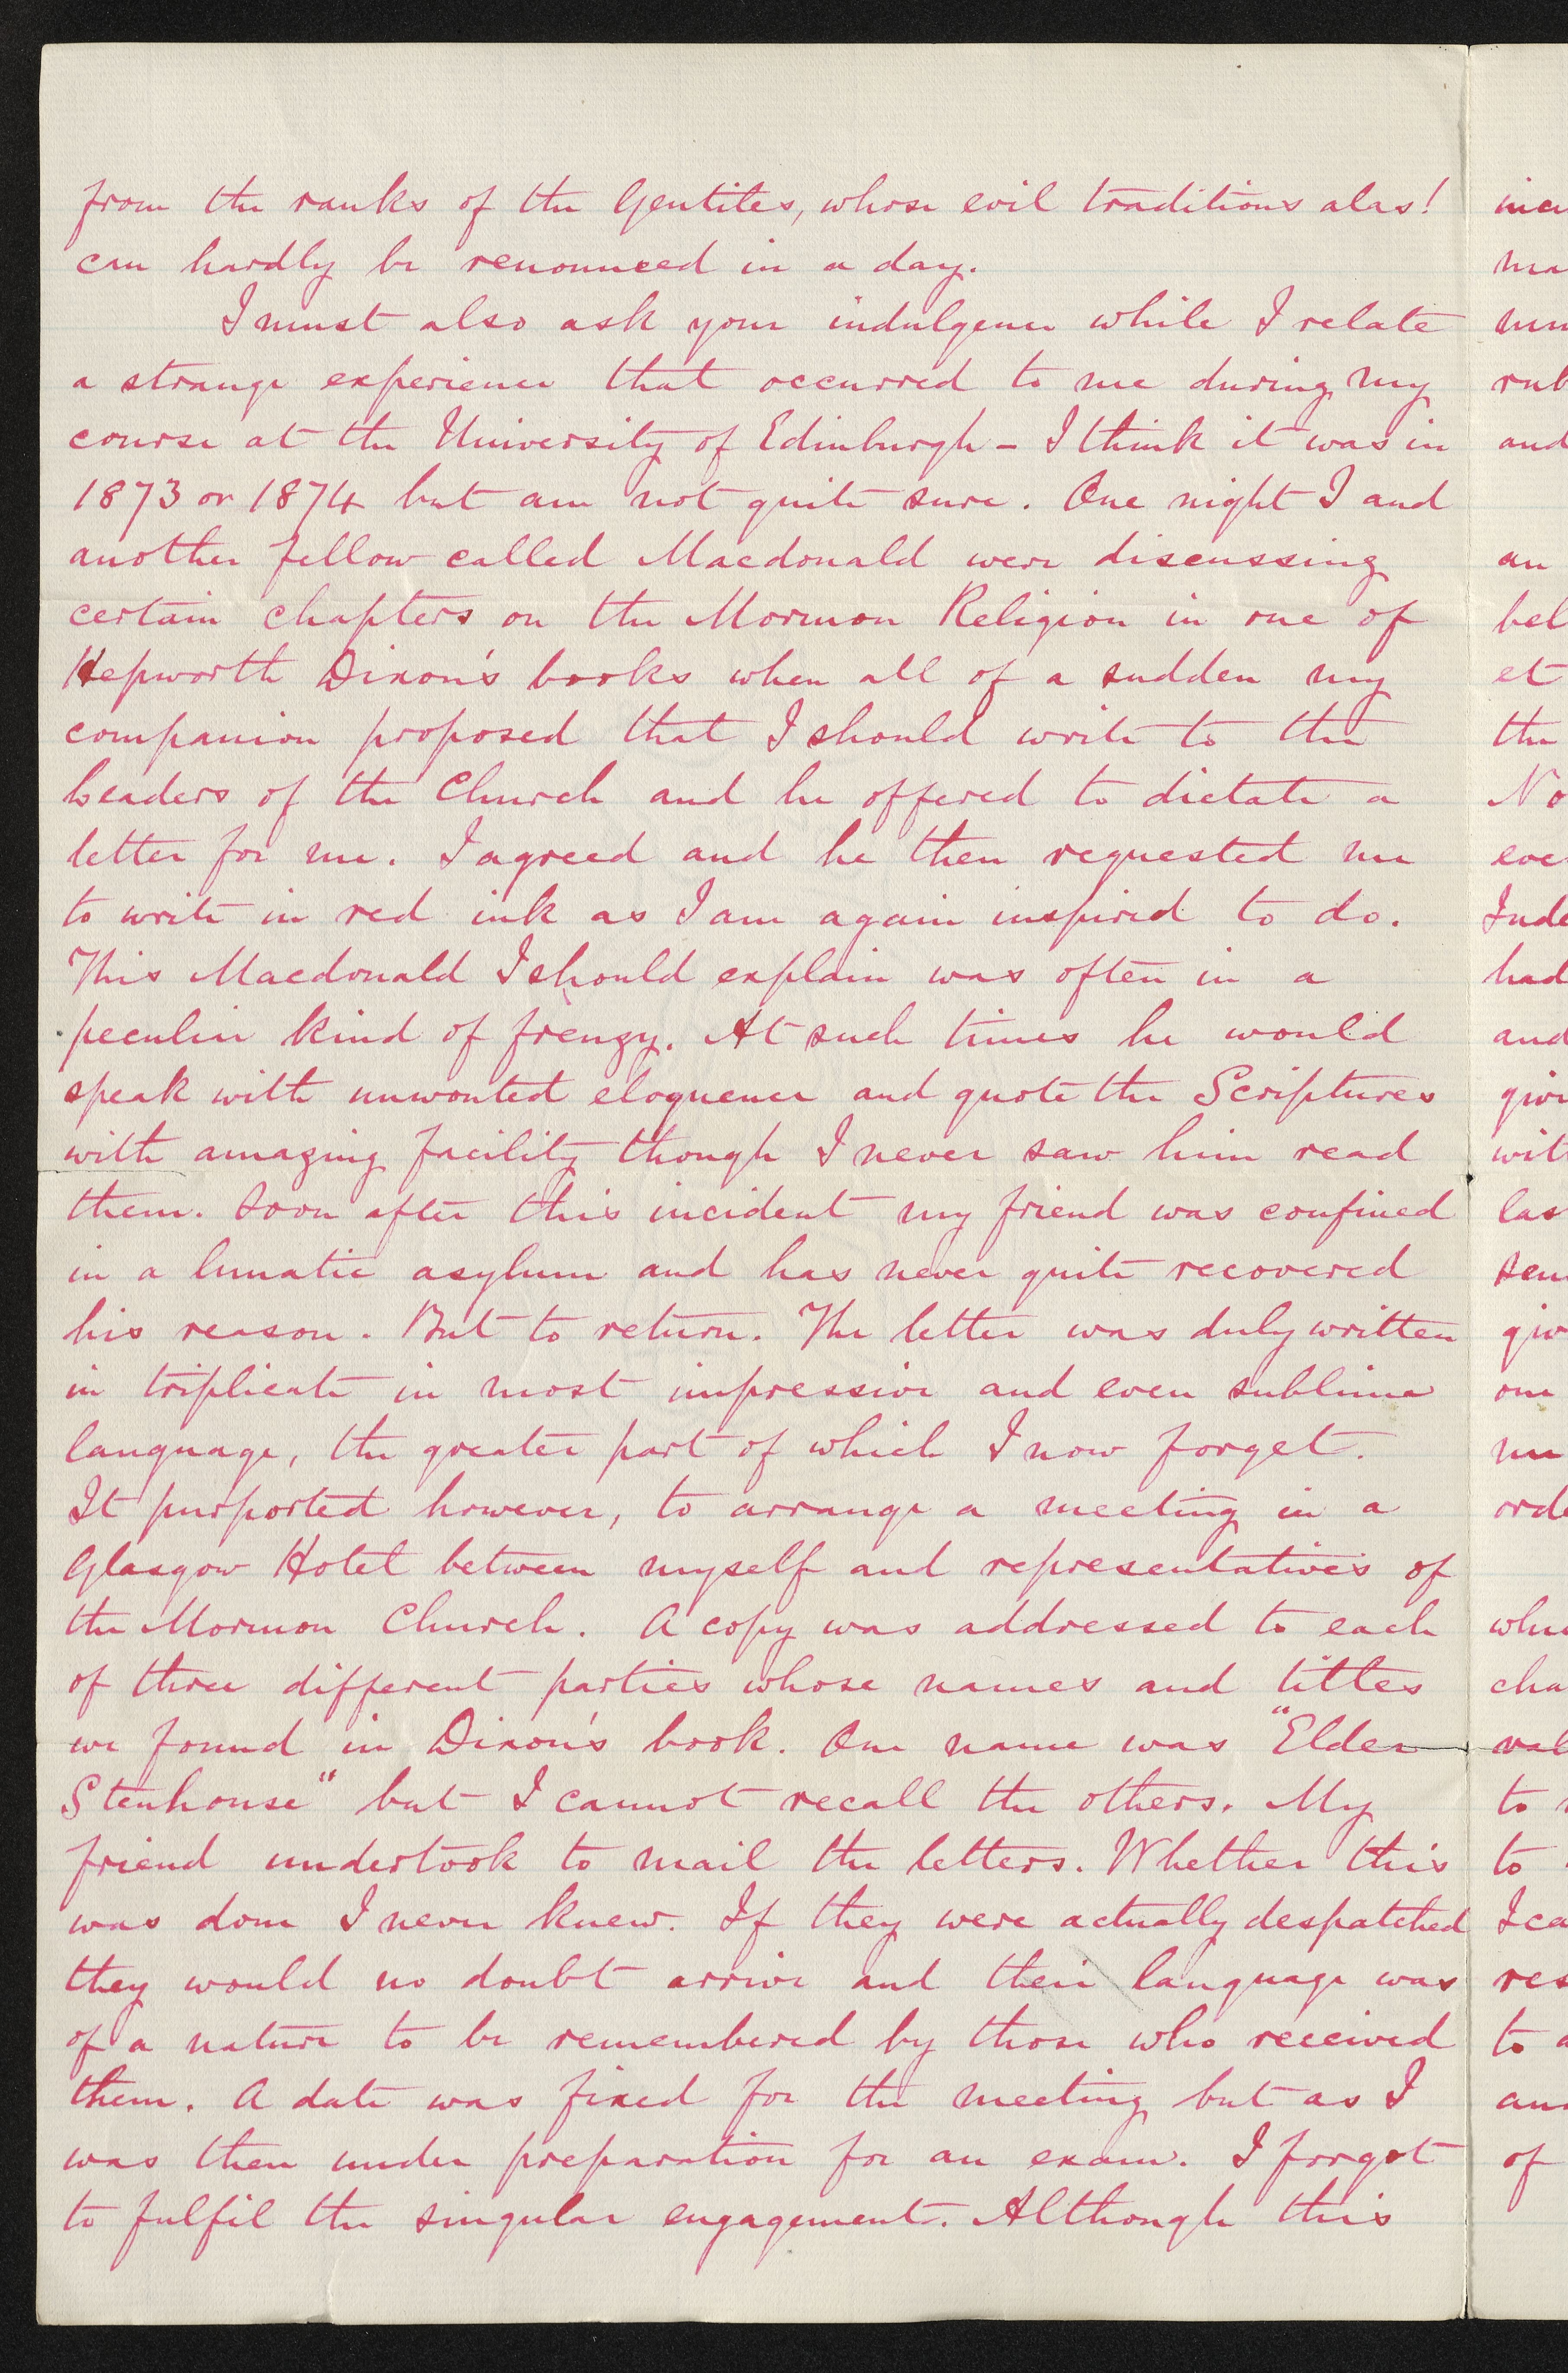 from the ranks of the Gentiles, whose evil traditions alas!
can hardly be renounced in a day.
I must also ask your indulgence while I relate
a strange experience that occurred to me during my
course at the University of Edinburgh – I think it was in
1873 or 1874 but am not quite sure. One night I and
another fellow called Macdonald were discussing
certain chapters on the Mormon Religion in one of
Hepworth Dixon's books when all of a sudden my
companion proposed that I should write to the
leaders of the Church and he offered to dictate a
letter for me. I agreed and he then requested me
to write in red ink as I am again inspired to do.
This Macdonald I should explain was often in a
peculiar kind of frenzy. At such times he would
speak with unwonted eloquence and quote the Scriptures
with amazing facility though I never saw him read
them. Soon after this incident my friend was confined
in a lunatic asylum and has never quite recovered
his reason. But to return. The letter was duly written
in triplicate in most impressive and even sublime
language, the greater part of which I now forget.
It purported however, to arrange a meeting in a
Glasgow Hotel between myself and representatives of
the Mormon Church. A copy was addressed to each
of three different parties whose names and titles
we found in Dixon's book. One name was "Elder
Stenhouse" but I cannot recall the others. My
friend undertook to mail the letters. Whether this
was done I never knew. If they were actually despatched
they would no doubt arrive and their language was
of a nature to be remembered by those who received
them. A date was fixed for the meeting but as I
was then under preparation for an exam. I forgot
to fulfil the singular engagement. Although this